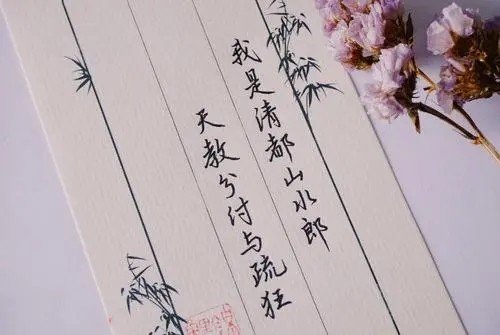 我是清都山水郎
天教分付与疏狂